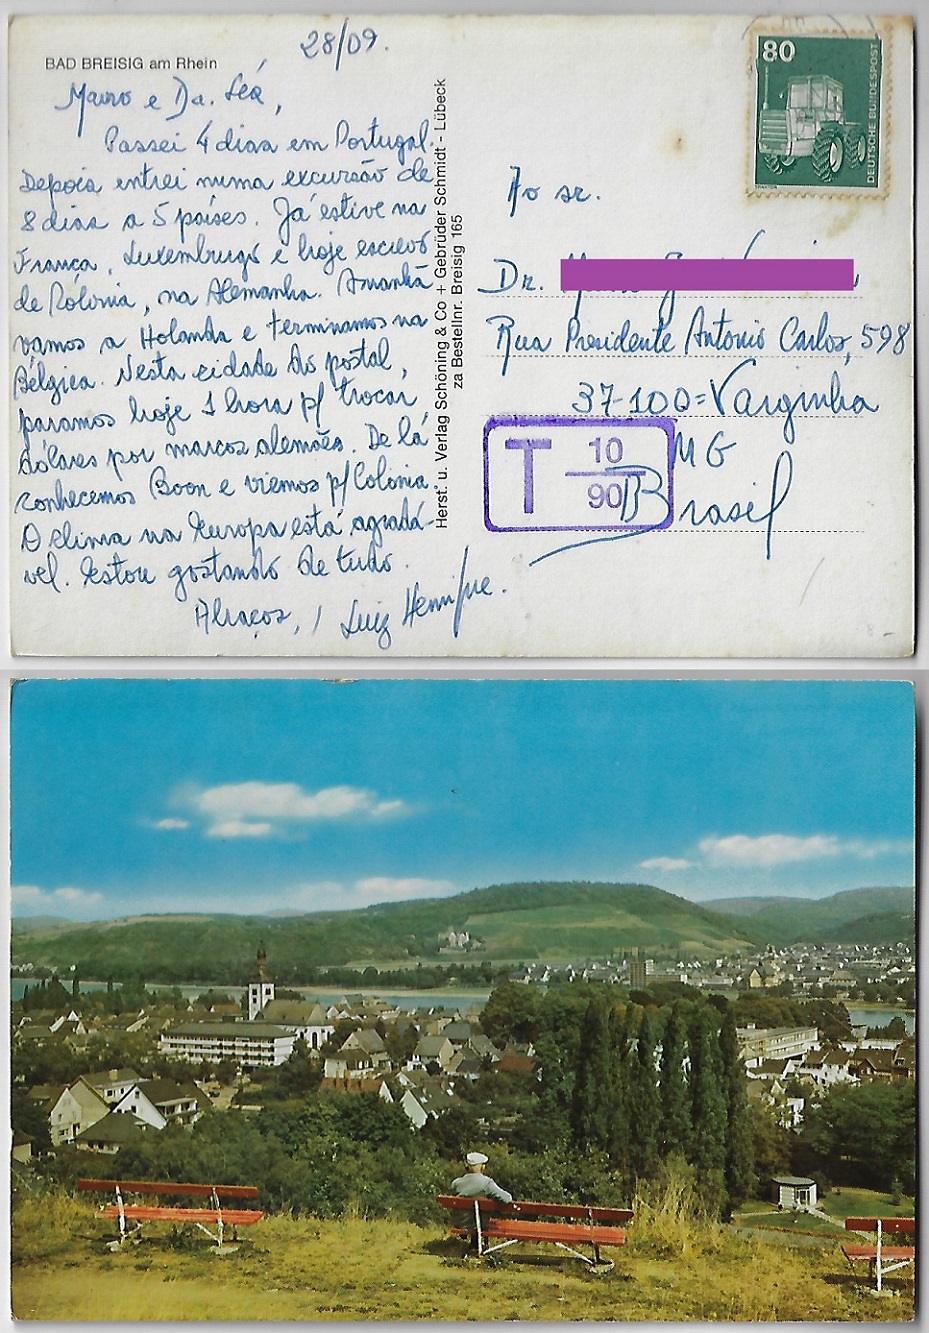 28/09.
BAD BREISIG am Rhein
Mauro e Da. Léa,
Passei 4 dias em Portugal.
Depois entrei numa excursão de
8 dias a 5 países. Já estive na
França, Luxemburgo e hoje escrevo
de Colônia, na Alemanha. Amanhã
vamos a Holanda e terminamos na
Bélgica. Nesta cidade do postal,
paramos hoje 1 hora p/ trocar
dólares por marcos alemães. De lá
conhecemos Boon e viemos p/ Colonia.
O clima na Europa está agradá-
vel. Estou gostando de tudo.
Abraços, Luiz Henrique.
Herst. u. Verlag Schöning & Co + Gebrüder Schmidt - Lübeck
za Bestellnr. Breisig 165
80
DEUTSCHE BUNDESPOST
TRAKTOR
Ao sr.
Dr.
Rua Presidente Antônio Carlos, 598
37-100=Varginha
MG
Brasil
T 10
90